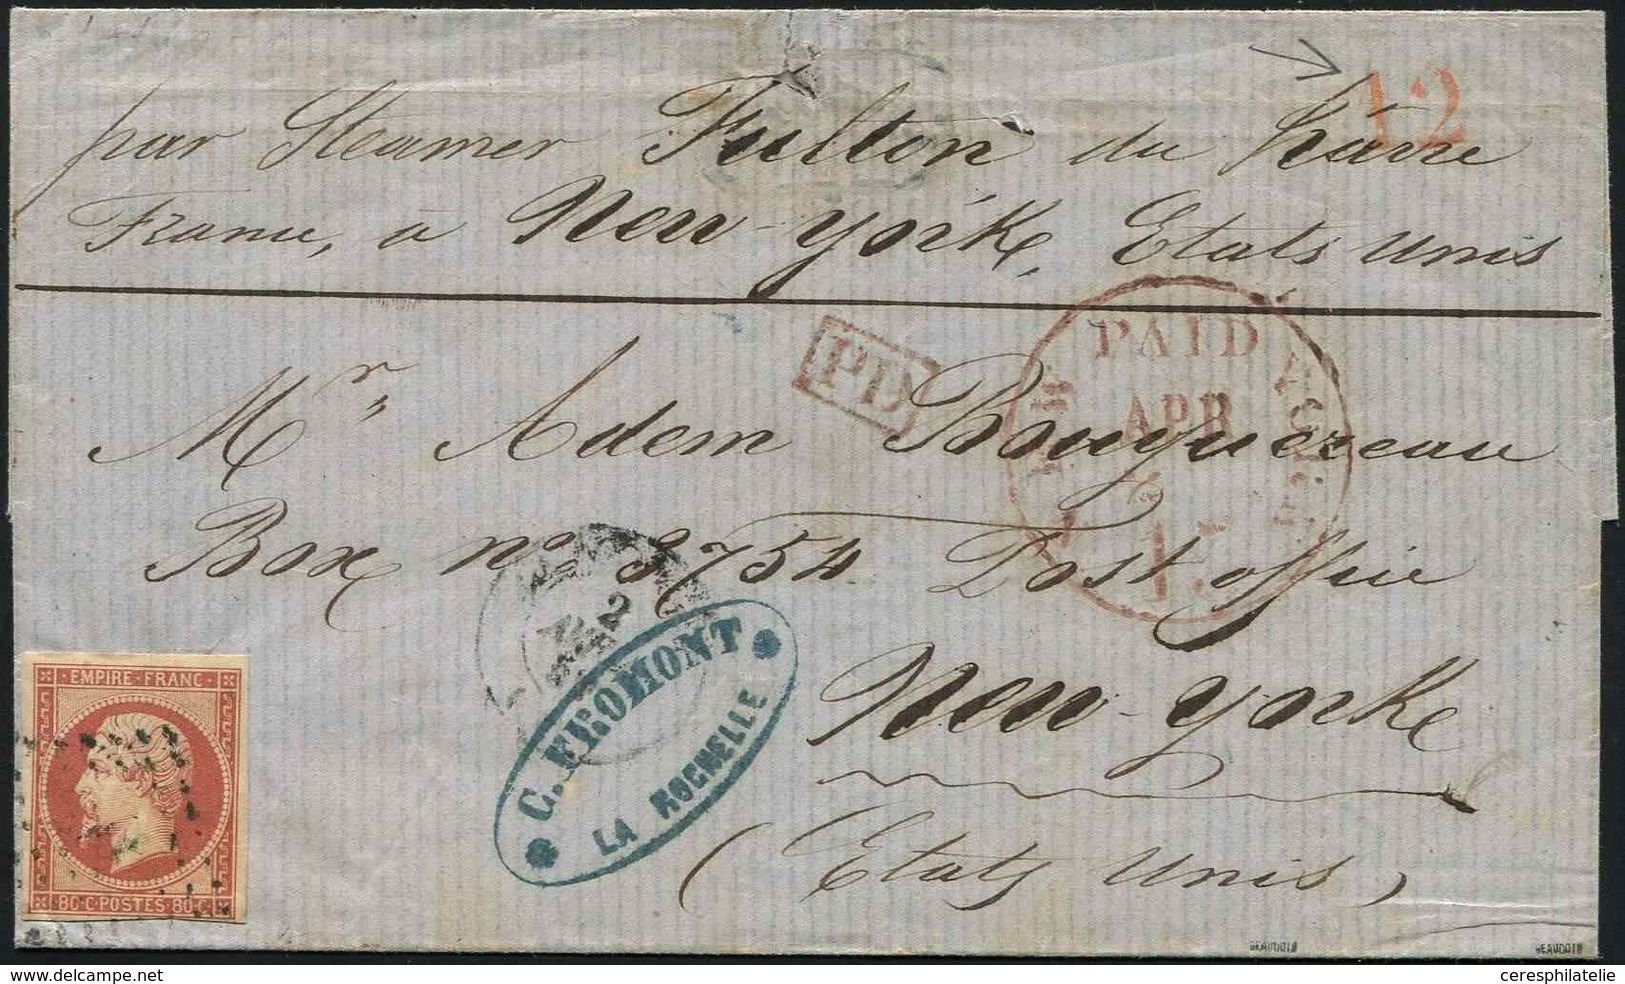 12
par Steamer Fulton du havre
France, à New-york, Etats unis
PD
PAID
APR
Mr Adem Bouquezeau
Box no 3754 Post office
New-york
(Etats Unis)
C. FROMONT
LA ROCHELLE
EMPIRE FRANC
80·C·POSTES·80·C
BEAUDOIN
BEAUDOIN
© delcampe.net
ceresphilatelie